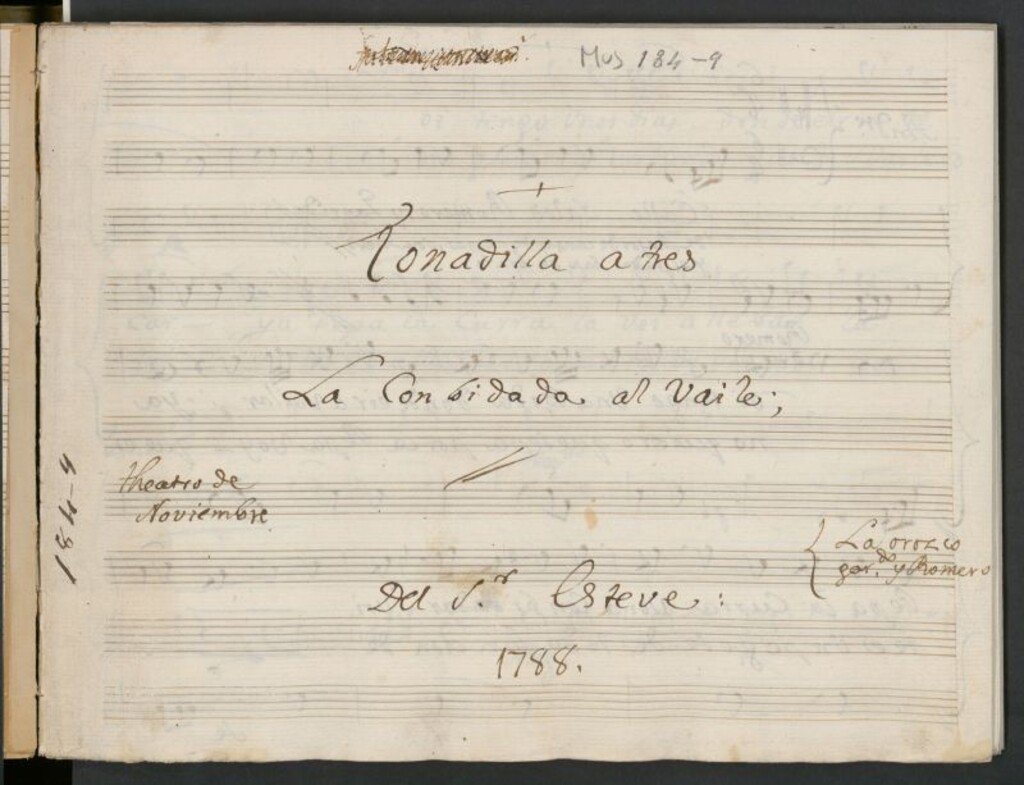 Mus 184-9
Tonadilla a tres
La Conbidada al Vaile;
184-9
theatro de
Noviembre
La orozco
gar.do y Romero
Del S.r Esteve:
1788.